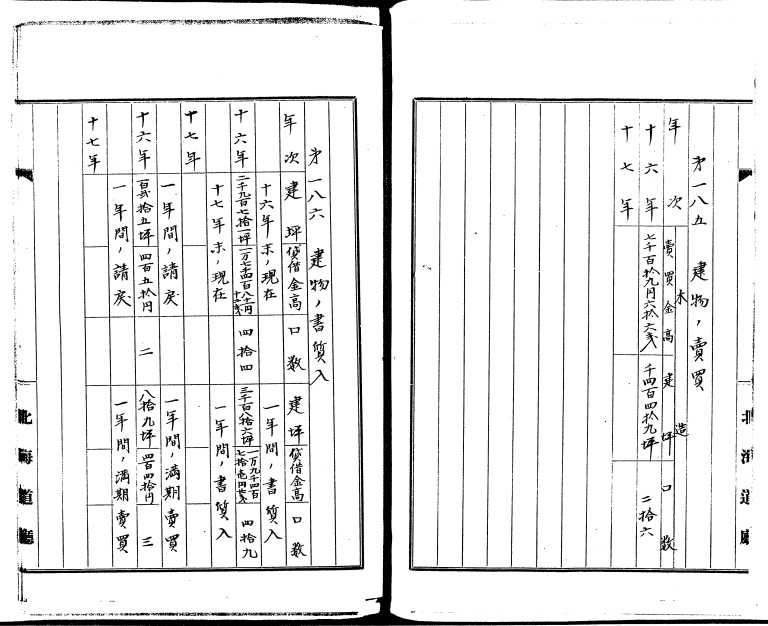 第一八五 建物ノ賣買
年次
木造
賣買金高 建坪 口数
十六年 七千百拾九円六拾六戋八 千四百四拾九坪 二拾六
十七年
第一八六 建物ノ書質入
年次 建坪 貸借金高 口数 建坪 貸借金高 口数
十六年末ノ現在 一年間ノ書質入
十六年 二千九百七拾一坪 四拾四 三千百八拾六坪 四拾九
十七年末ノ現在 一年間ノ書質入
十七年
一年間ノ請戻 一年間ノ満期賣買
十六年 百弐拾五坪 四百五拾円 二 八拾九坪 四百四拾円 三
一年間ノ請戻 一年間ノ満期賣買
十七年
北海道廳
北海道廳